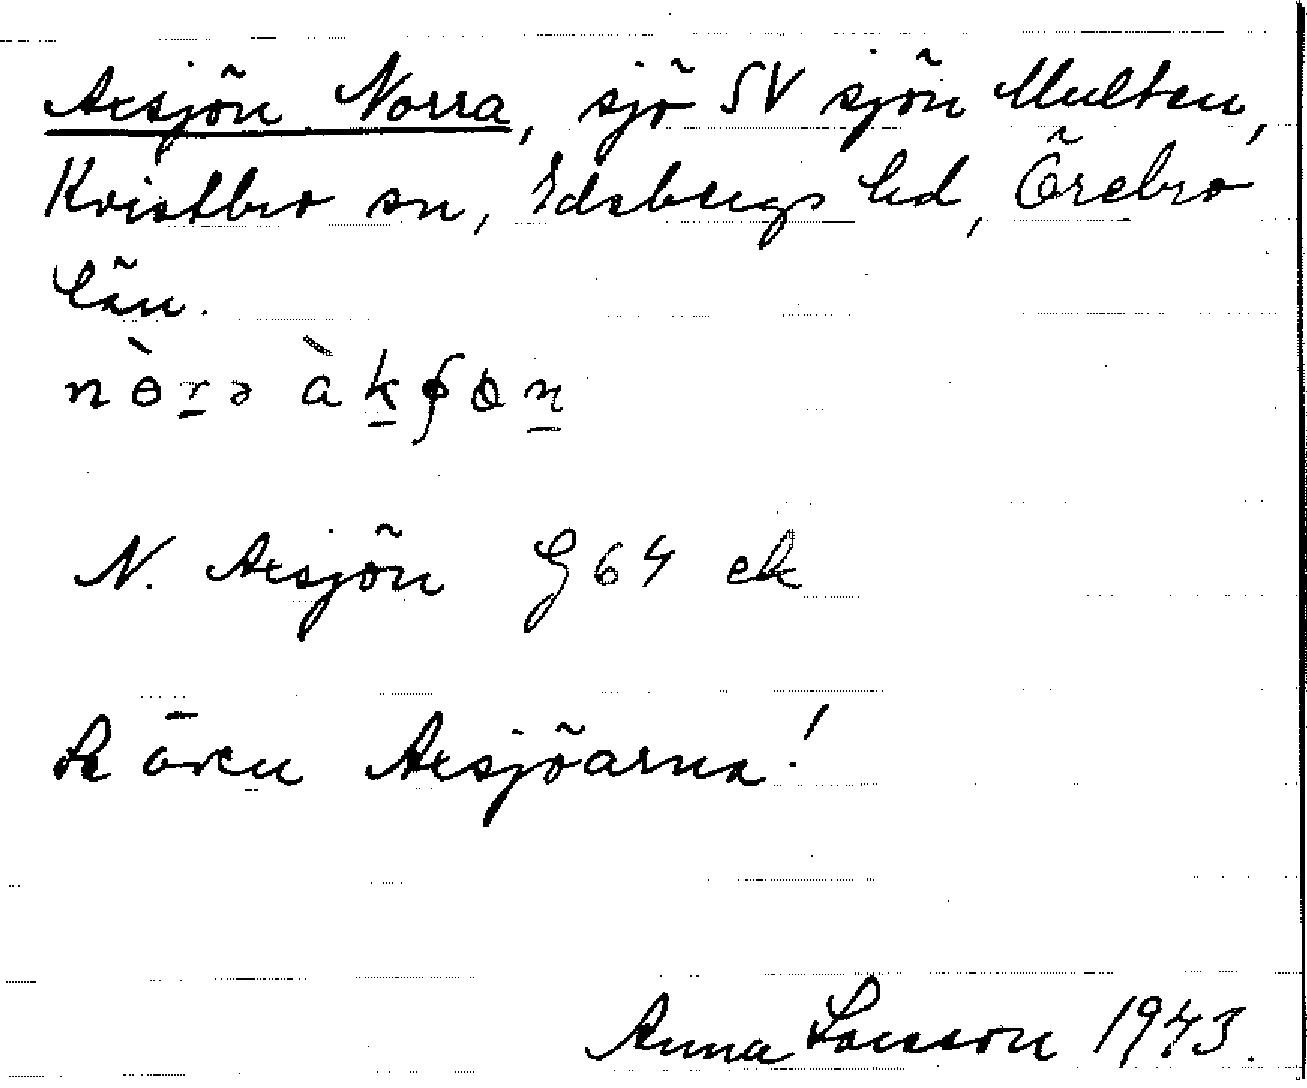 Axsjön Norra, sjö SV sjön Multen,
Kvistbro sn, Edsbergs hd, Örebro
län.
nòrə àkʃɵn
N. Axsjön G64 ek
Se även Axsjöarna!
Anna Larsson 1943.